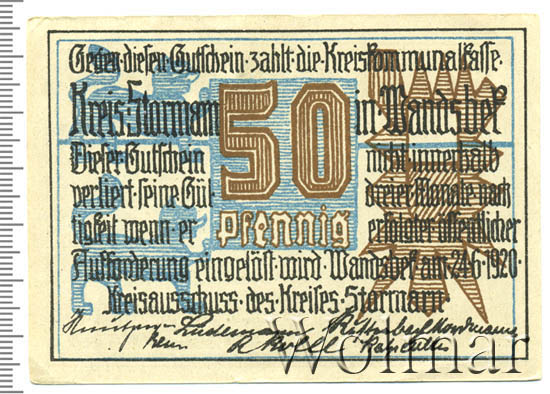 Gegen diesen Gutschein zahlt die Kreiskommunalkasse
Kreis Stormarn 50 in Wandsbek
Dieser Gutschein nicht innerhalb
verliert seine Gül- dreier Monate nach
tigkeit wenn er Pfennig erfolgter öffentlicher
Aufforderung eingelöst wird. Wandsbek am 24.6.1920.
Kreisausschuss des Kreises Stormarn
Wolmar